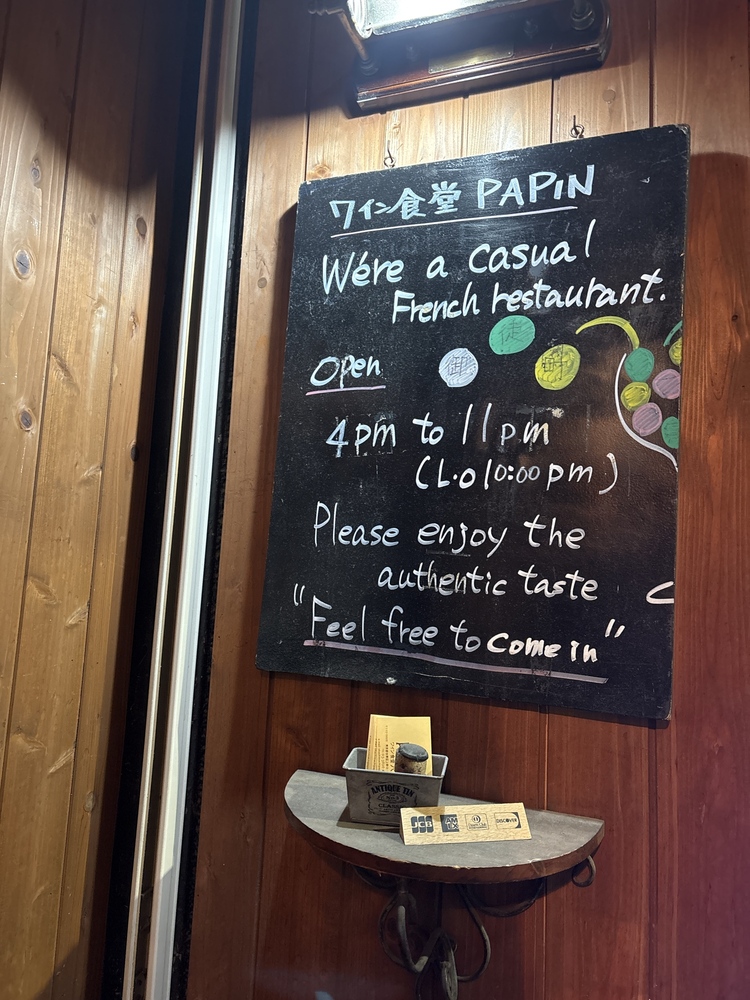 ワイン食堂 PAPIN
We're a casual
French restaurant.
御 徒 町
Open
4pm to 11pm
(L.O 10:00pm)
Please enjoy the
authentic taste
"Feel free to come in"
ANTIQUE TIN
CLASSIC
JCB AMEX Diners Club DISCOVER